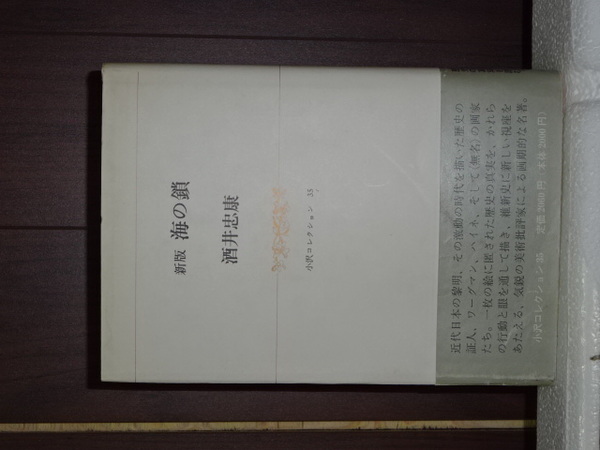 新版 海の鎖
酒井忠康
小沢コレクション 35
近代日本の黎明、その激動の時代を描いた歴史の
証人、ワーグマン、ハイネ、そして〈無名〉の画家
たち。一枚の絵に匿された歴史の真実を、かれら
の行動と眼を通して描き、維新史に新しい視座を
あたえる、気鋭の美術批評家による画期的な名著。
小沢コレクション 35
定価2060円(本体2000円)